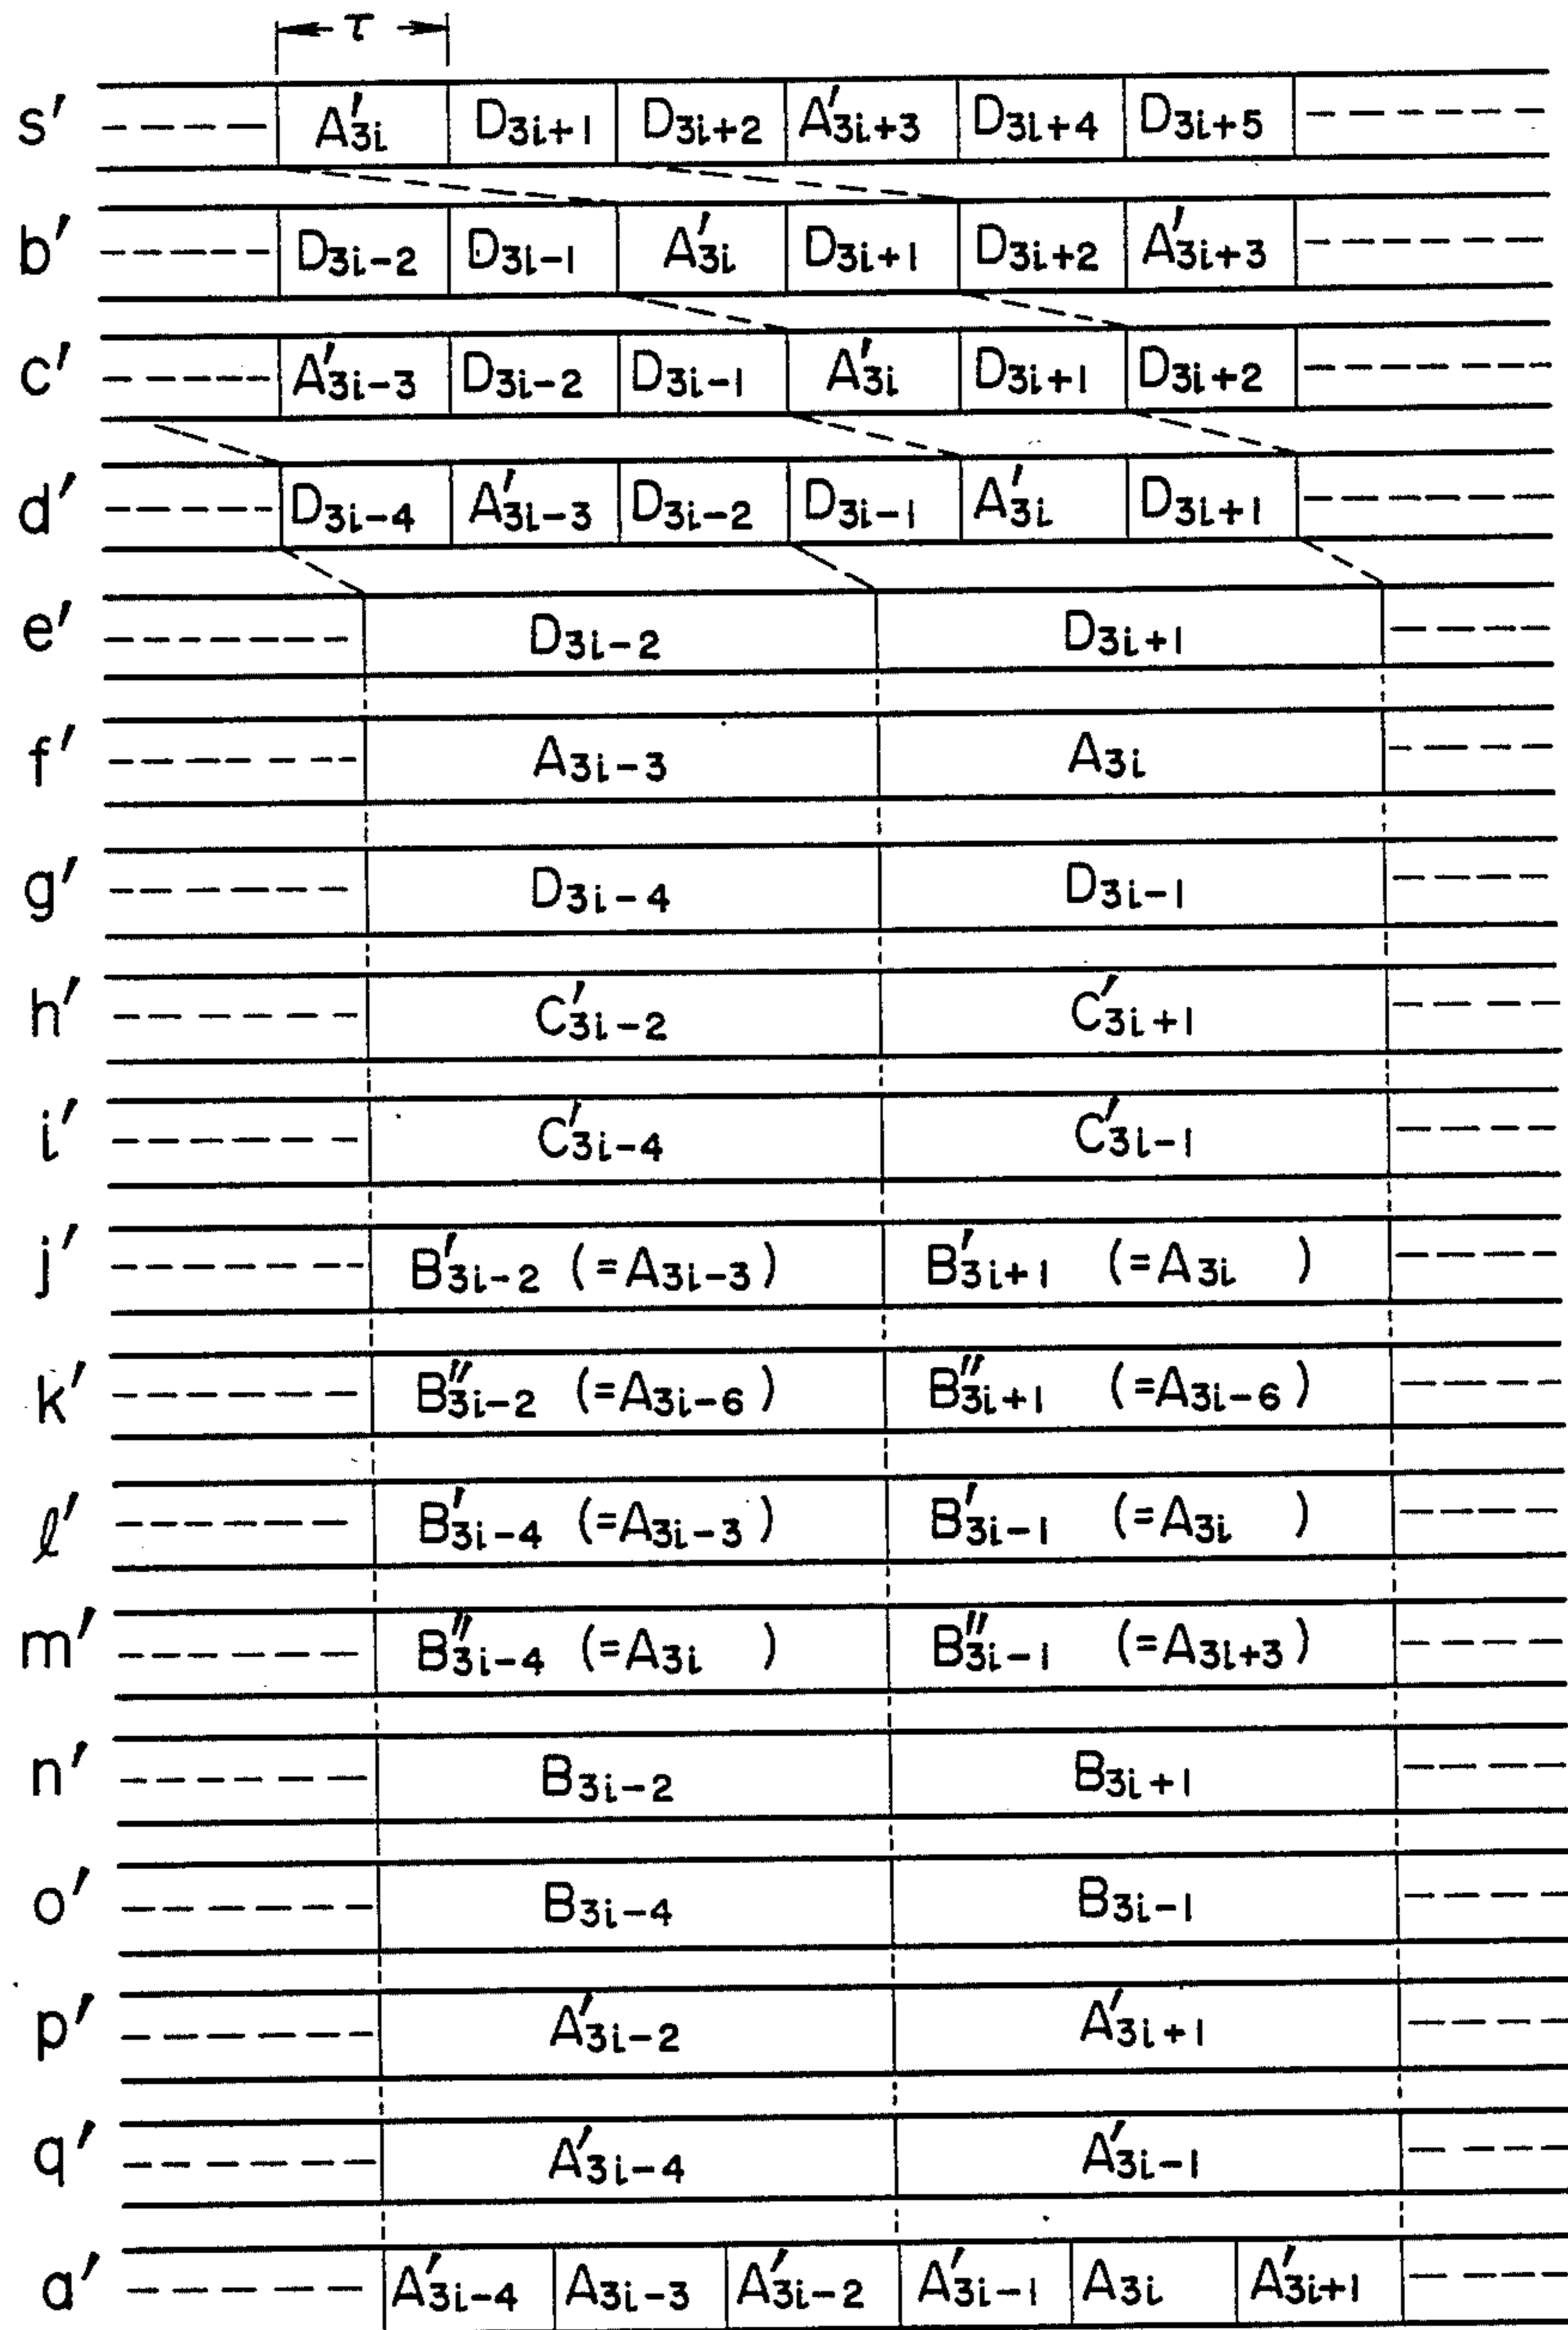 τ
s' A'3i D3i+1 D3i+2 A'3i+3 D3i+4 D3i+5
b' D3i-2 D3i-1 A'3i D3i+1 D3i+2 A'3i+3
c' A'3i-3 D3i-2 D3i-1 A'3i D3i+1 D3i+2
d' D3i-4 A'3i-3 D3i-2 D3i-1 A'3i D3i+1
e' D3i-2 D3i+1
f' A3i-3 A3i
g' D3i-4 D3i-1
h' C'3i-2 C'3i+1
i' C'3i-4 C'3i-1
j' B'3i-2 (=A3i-3) B'3i+1 (=A3i )
k' B"3i-2 (=A3i-6) B"3i+1 (=A3i-6)
ℓ' B'3i-4 (=A3i-3) B'3i-1 (=A3i )
m' B"3i-4 (=A3i ) B"3i-1 (=A3i+3)
n' B3i-2 B3i+1
o' B3i-4 B3i-1
p' A'3i-2 A'3i+1
q' A'3i-4 A'3i-1
a' A'3i-4 A3i-3 A'3i-2 A'3i-1 A3i A'3i+1